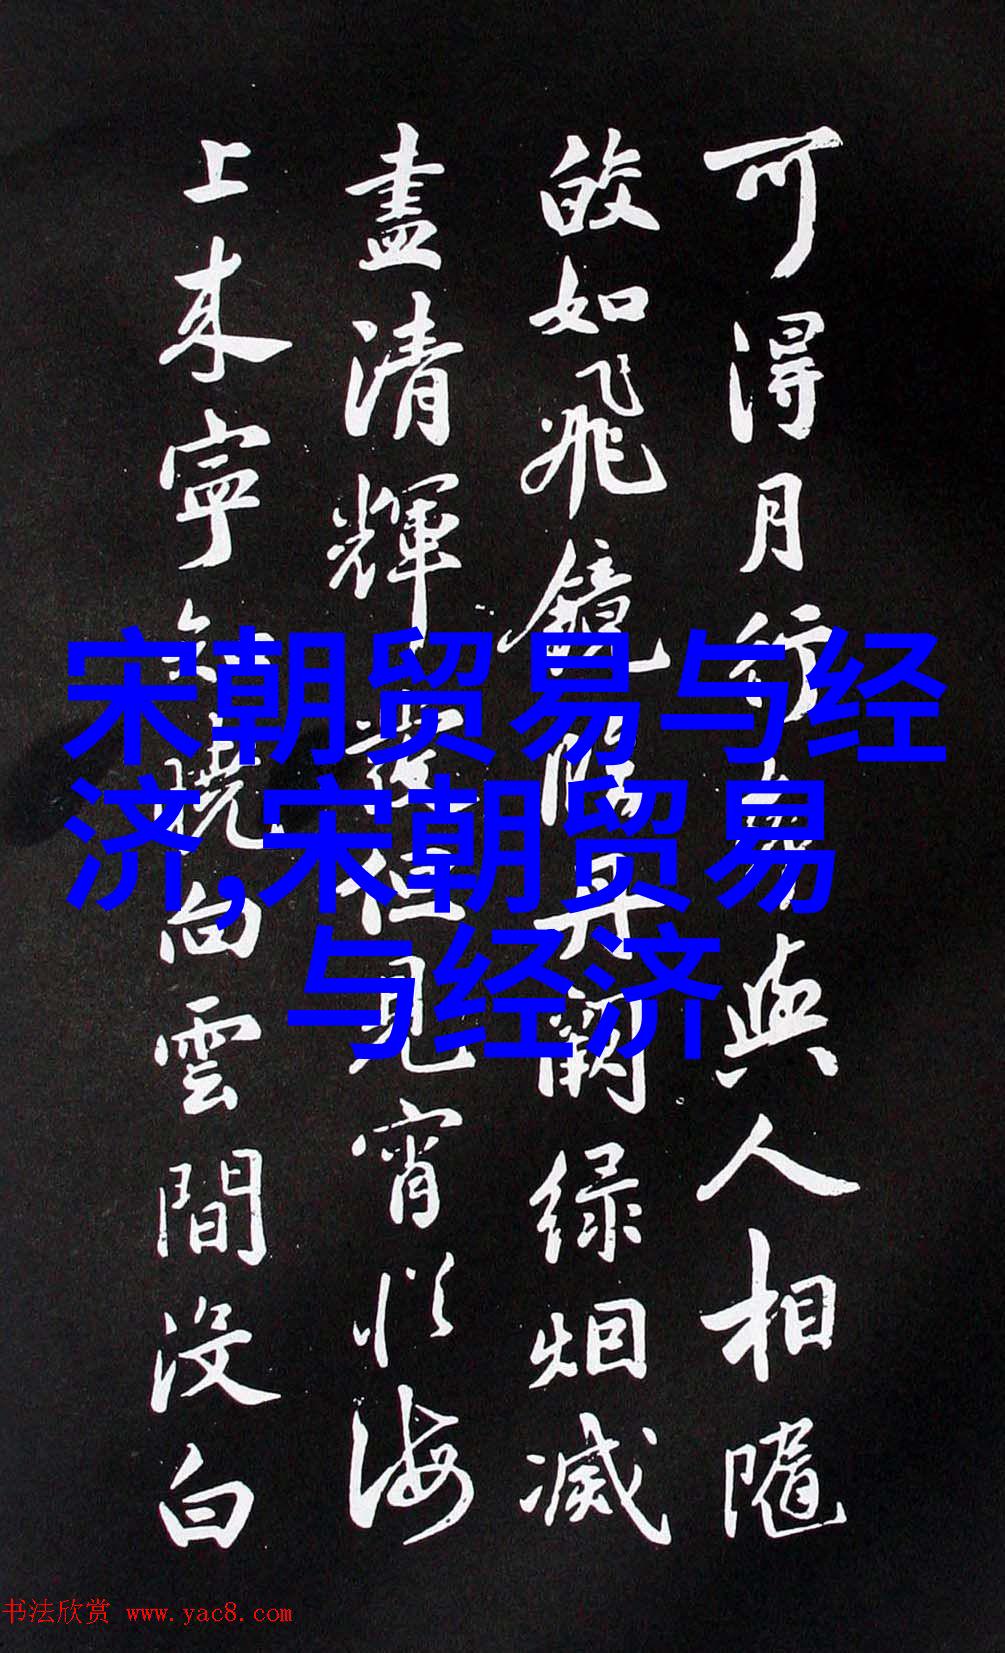 可得月行却與人相隨
皎如飛鏡臨丹闕緑烟滅
盡清輝發但見宵從海
上来寧知曉向雲間没白
宋朝贸易与经
济,宋朝贸易
与经济
书法欣赏 www.yac8.com